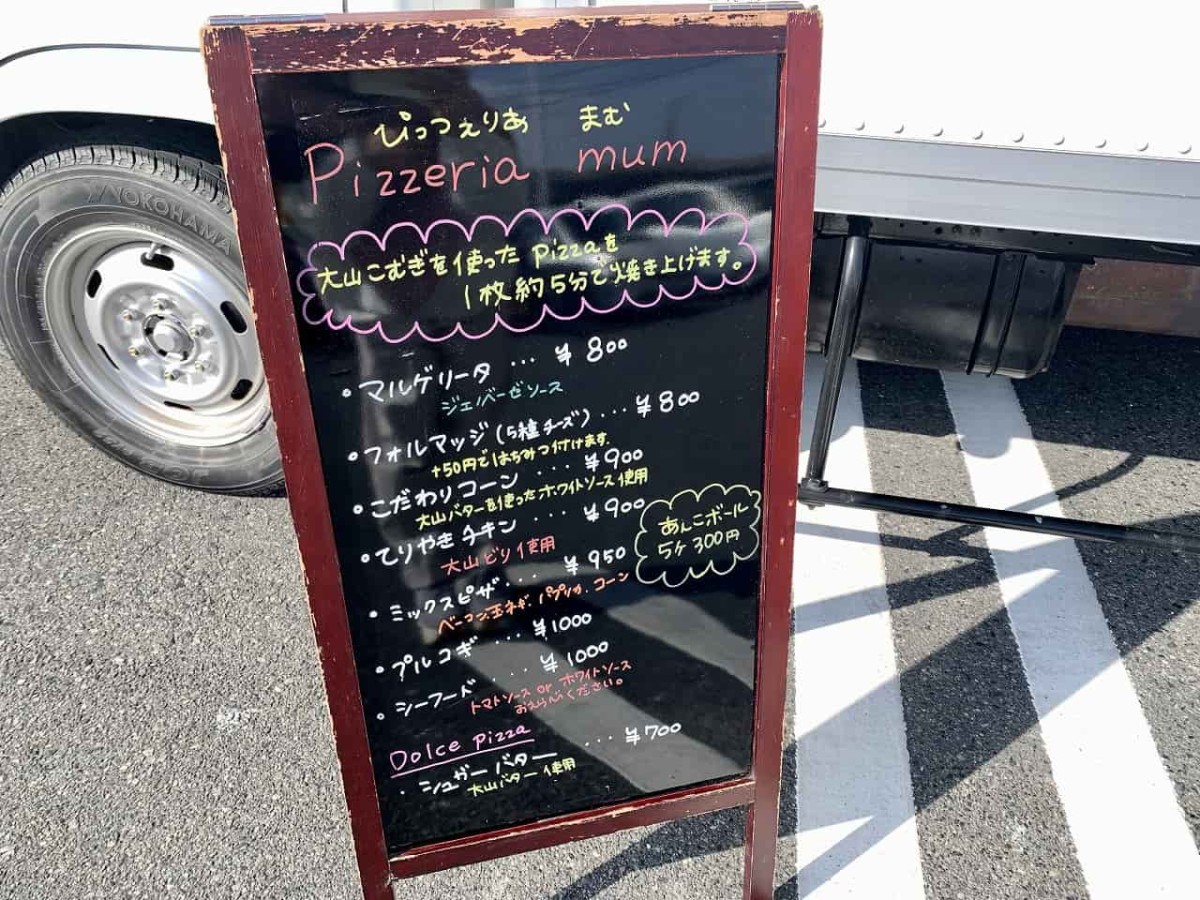 ぴっつぇりあ まむ
Pizzeria mum
大山こむぎを使った Pizzaを
1枚約5分で焼き上げます。
・マルゲリータ … ¥800
ジェノベーゼソース
・フォルマッジ(5種チーズ) … ¥800
+50円ではちみつ付けます
・こだわりコーン … ¥900
大山バターを使ったホワイトソース使用
・てりやきチキン … ¥900
大山どり使用
あんこボール
5ケ 300円
・ミックスピザ … ¥950
ベーコン.玉ネギ.パプリカ.コーン
・プルコギ … ¥1000
・シーフード … ¥1000
トマトソース or ホワイトソース
おえらびください。
Dolce Pizza
・シュガーバター … ¥700
大山バター使用
YOKOHAMA